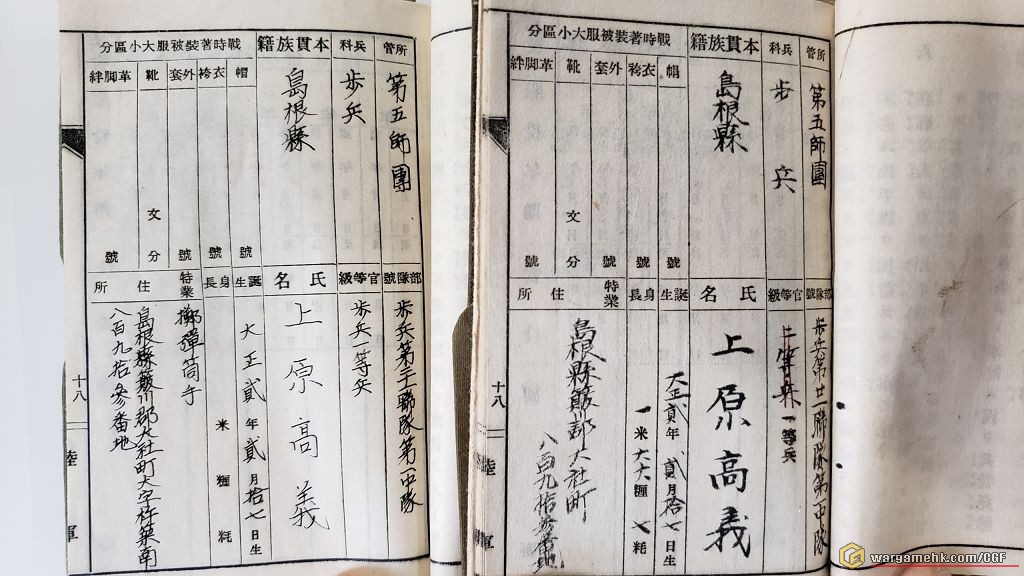 所管
第五師團
兵科
歩兵
本貫族籍
島根縣
戰時著裝被服大小區分
帽
號
衣袴
號
外套
號
靴
文
分
革脚絆
號
部隊號
歩兵第
聯隊第一中隊
官等級
歩兵一等兵
氏名
上原高義
誕生
大正貳年貳月拾七日生
身長
米
糎
粍
特業
擲彈筒手
住所
島根縣簸川郡大社町大字杵築南
八百九拾参番地
十八
陸軍
所管
第五師團
兵科
歩兵
本貫族籍
島根縣
戰時著裝被服大小區分
帽
號
衣袴
號
外套
號
靴
文
分
革脚絆
號
部隊號
歩兵第廿一聯隊第一中隊
官等級
二等兵
一等兵
氏名
上原高義
誕生
大正貳年貳月拾七日生
身長
一米六六糎
粍
特業
住所
島根縣簸川郡大社町
八百九拾参番地
十八
陸軍
wargamehk.com/CGF